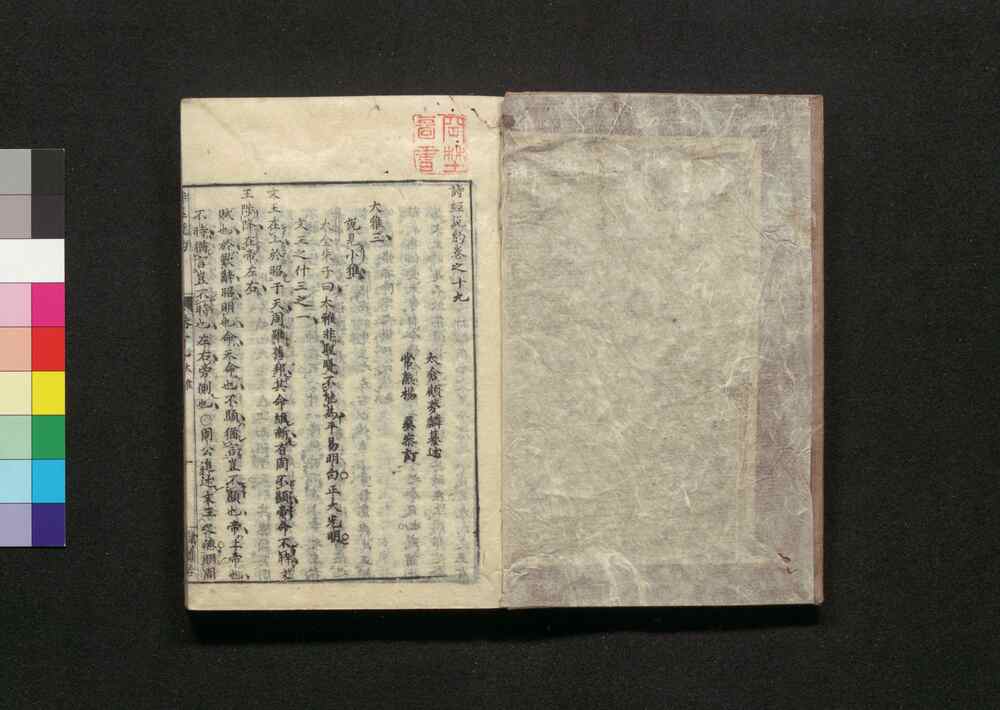 岡埜圖書
詩經説約卷之十九
太倉顧夢麟纂述
常熟楊 彝參訂
大雅三
説見小雅
大全朱子曰大雅非聖賢不能爲平易明白正大光明
文王之什三之一
文王在上於昭于天周雖舊邦其命維新有周不顯帝命不時文
王陟降在帝左右
賦也於歎辭昭明也命天命也不顯猶言豈不顯也帝上帝也
不時猶言豈不時也左右旁側也○周公追述文王之德明周